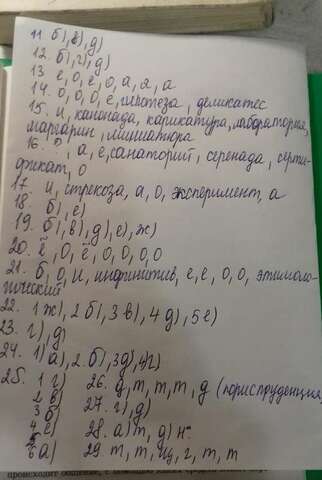 11. б), в), д)
12. б), г), д)
13 е, о, е, о, а, а, а
14. о, о, о, е, гипотеза, деликатес
15. и, канонада, карикатура, лаборатория,
маргарин, миниатюра
16. а, е, санаторий, серенада, серти-
фикат, о
17. и, стрекоза, а, о, эксперимент, а
18. б), е)
19. б), в), д), е), ж)
20. ё, о, ё, о, о, о, о
21. б, о, и, инфинитив, е, е, о, о, этимоло-
гический
22. 1 ж), 2 б), 3 в), 4 д), 5 е)
23. г), д)
24. 1) а), 2. б), 3 д), 4 г)
25. 1 г) 26. д, т, т, т, д (юриспруденция,
2 в) 27. г), д)
3 б)
4 е) 28. а) т, д) н
5
6 а) 29 т, т, щ, г, т, т
происходит общение, с помощью каких средств